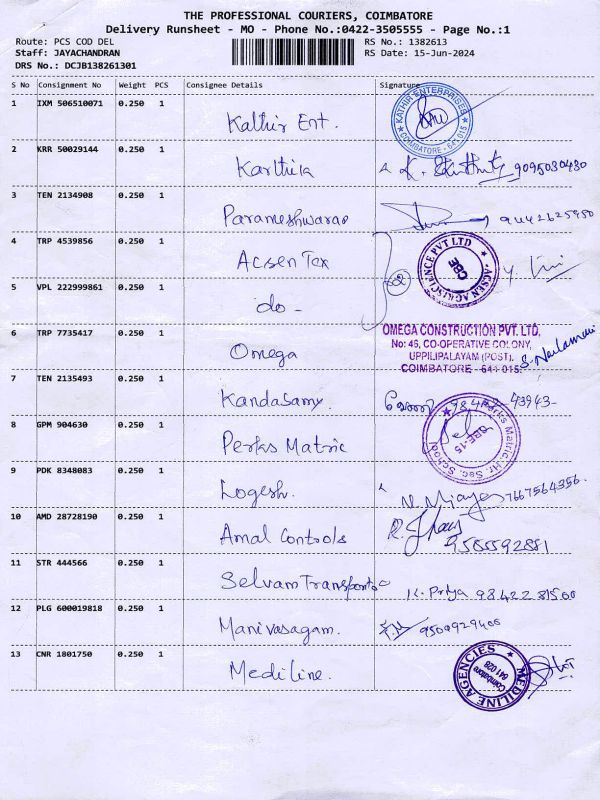 THE PROFESSIONAL COURIERS, COIMBATORE
Delivery Runsheet - MO - Phone No.:0422-3505555 - Page No.:1
Route: PCS COD DEL RS No.: 1382613
Staff: JAYACHANDRAN RS Date: 15-Jun-2024
DRS No.: DCJB138261301
S No Consignment No Weight PCS Consignee Details Signature
1 IXM 506510071 0.250 1 Kathir Ent. KATHIR ENTERPRISES COIMBATORE - 641 015
2 KRR 50029144 0.250 1 Karthika K. 9095030430
3 TEN 2134908 0.250 1 Parameshwaran
4 TRP 4539856 0.250 1 Acsen Tex ACSEN AGRISCIENCE PVT LTD CBE
5 VPL 222999861 0.250 1 do -
OMEGA CONSTRUCTION PVT. LTD,
6 TRP 7735417 0.250 1 Omega No: 46, CO-OPERATIVE COLONY,
UPPILIPALAYAM (POST),
COIMBATORE - 641 015.
7 TEN 2135493 0.250 1 Kandasamy.
8 GPM 904630 0.250 1 Perks Matric Perks Matric. Hr. Sec. School CBE-15
9 PDK 8348083 0.250 1 Logesh. 7667564356
10 AMD 28728190 0.250 1 Amal Controls
11 STR 444566 0.250 1 Selvam Transports K. Priya
12 PLG 600019818 0.250 1 Manivasagam.
13 CNR 1801750 0.250 1 Mediline. MEDILINE AGENCIES Coimbatore 641 028